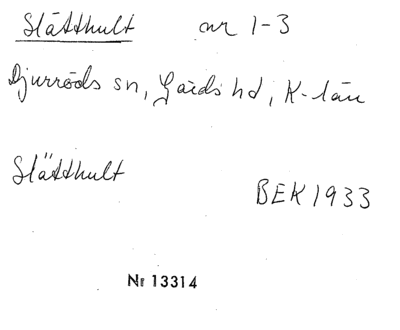 Slätthult nr 1-3
Djurröds sn, Gärds hd, K-län
Slätthult
BEK 1933
Nr 13314